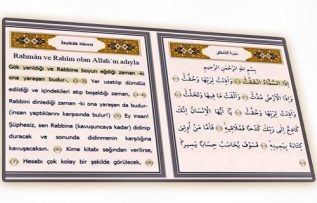 İnşikâk Sûresi
Rahmân ve Rahîm olan Allah'ın adıyla
Gök yarıldığı ve Rabbine boyun eğdiği zaman -ki
ona yaraşan budur-, (1-2) Yer uzatılıp dümdüz
edildiği ve içindekileri atıp boşaldığı zaman, (3-4)
Rabbini dinlediği zaman -ki ona yaraşan da budur-
(insan yaptıklarını karşısında bulur!) (5) Ey insan!
Şüphesiz, sen Rabbine (kavuşuncaya kadar) didinip
duracak ve sonunda didinmenin karşılığına
kavuşacaksın. (6) Kime kitabı sağından verilirse,
(7) Hesabı çok kolay bir şekilde görülecek, (8)
سورة الانشقاق
بِسْمِ اللَّهِ الرَّحْمَنِ الرَّحِيمِ
إِذَا السَّمَاءُ انْشَقَّتْ وَأَذِنَتْ لِرَبِّهَا وَحُقَّتْ
وَإِذَا الْأَرْضُ مُدَّتْ وَأَلْقَتْ مَا فِيهَا وَتَخَلَّتْ
وَأَذِنَتْ لِرَبِّهَا وَحُقَّتْ يَا أَيُّهَا الْإِنْسَانُ إِنَّكَ
كَادِحٌ إِلَى رَبِّكَ كَدْحًا فَمُلَاقِيهِ فَأَمَّا مَنْ أُوتِيَ
كِتَابَهُ بِيَمِينِهِ فَسَوْفَ يُحَاسَبُ حِسَابًا يَسِيرًا